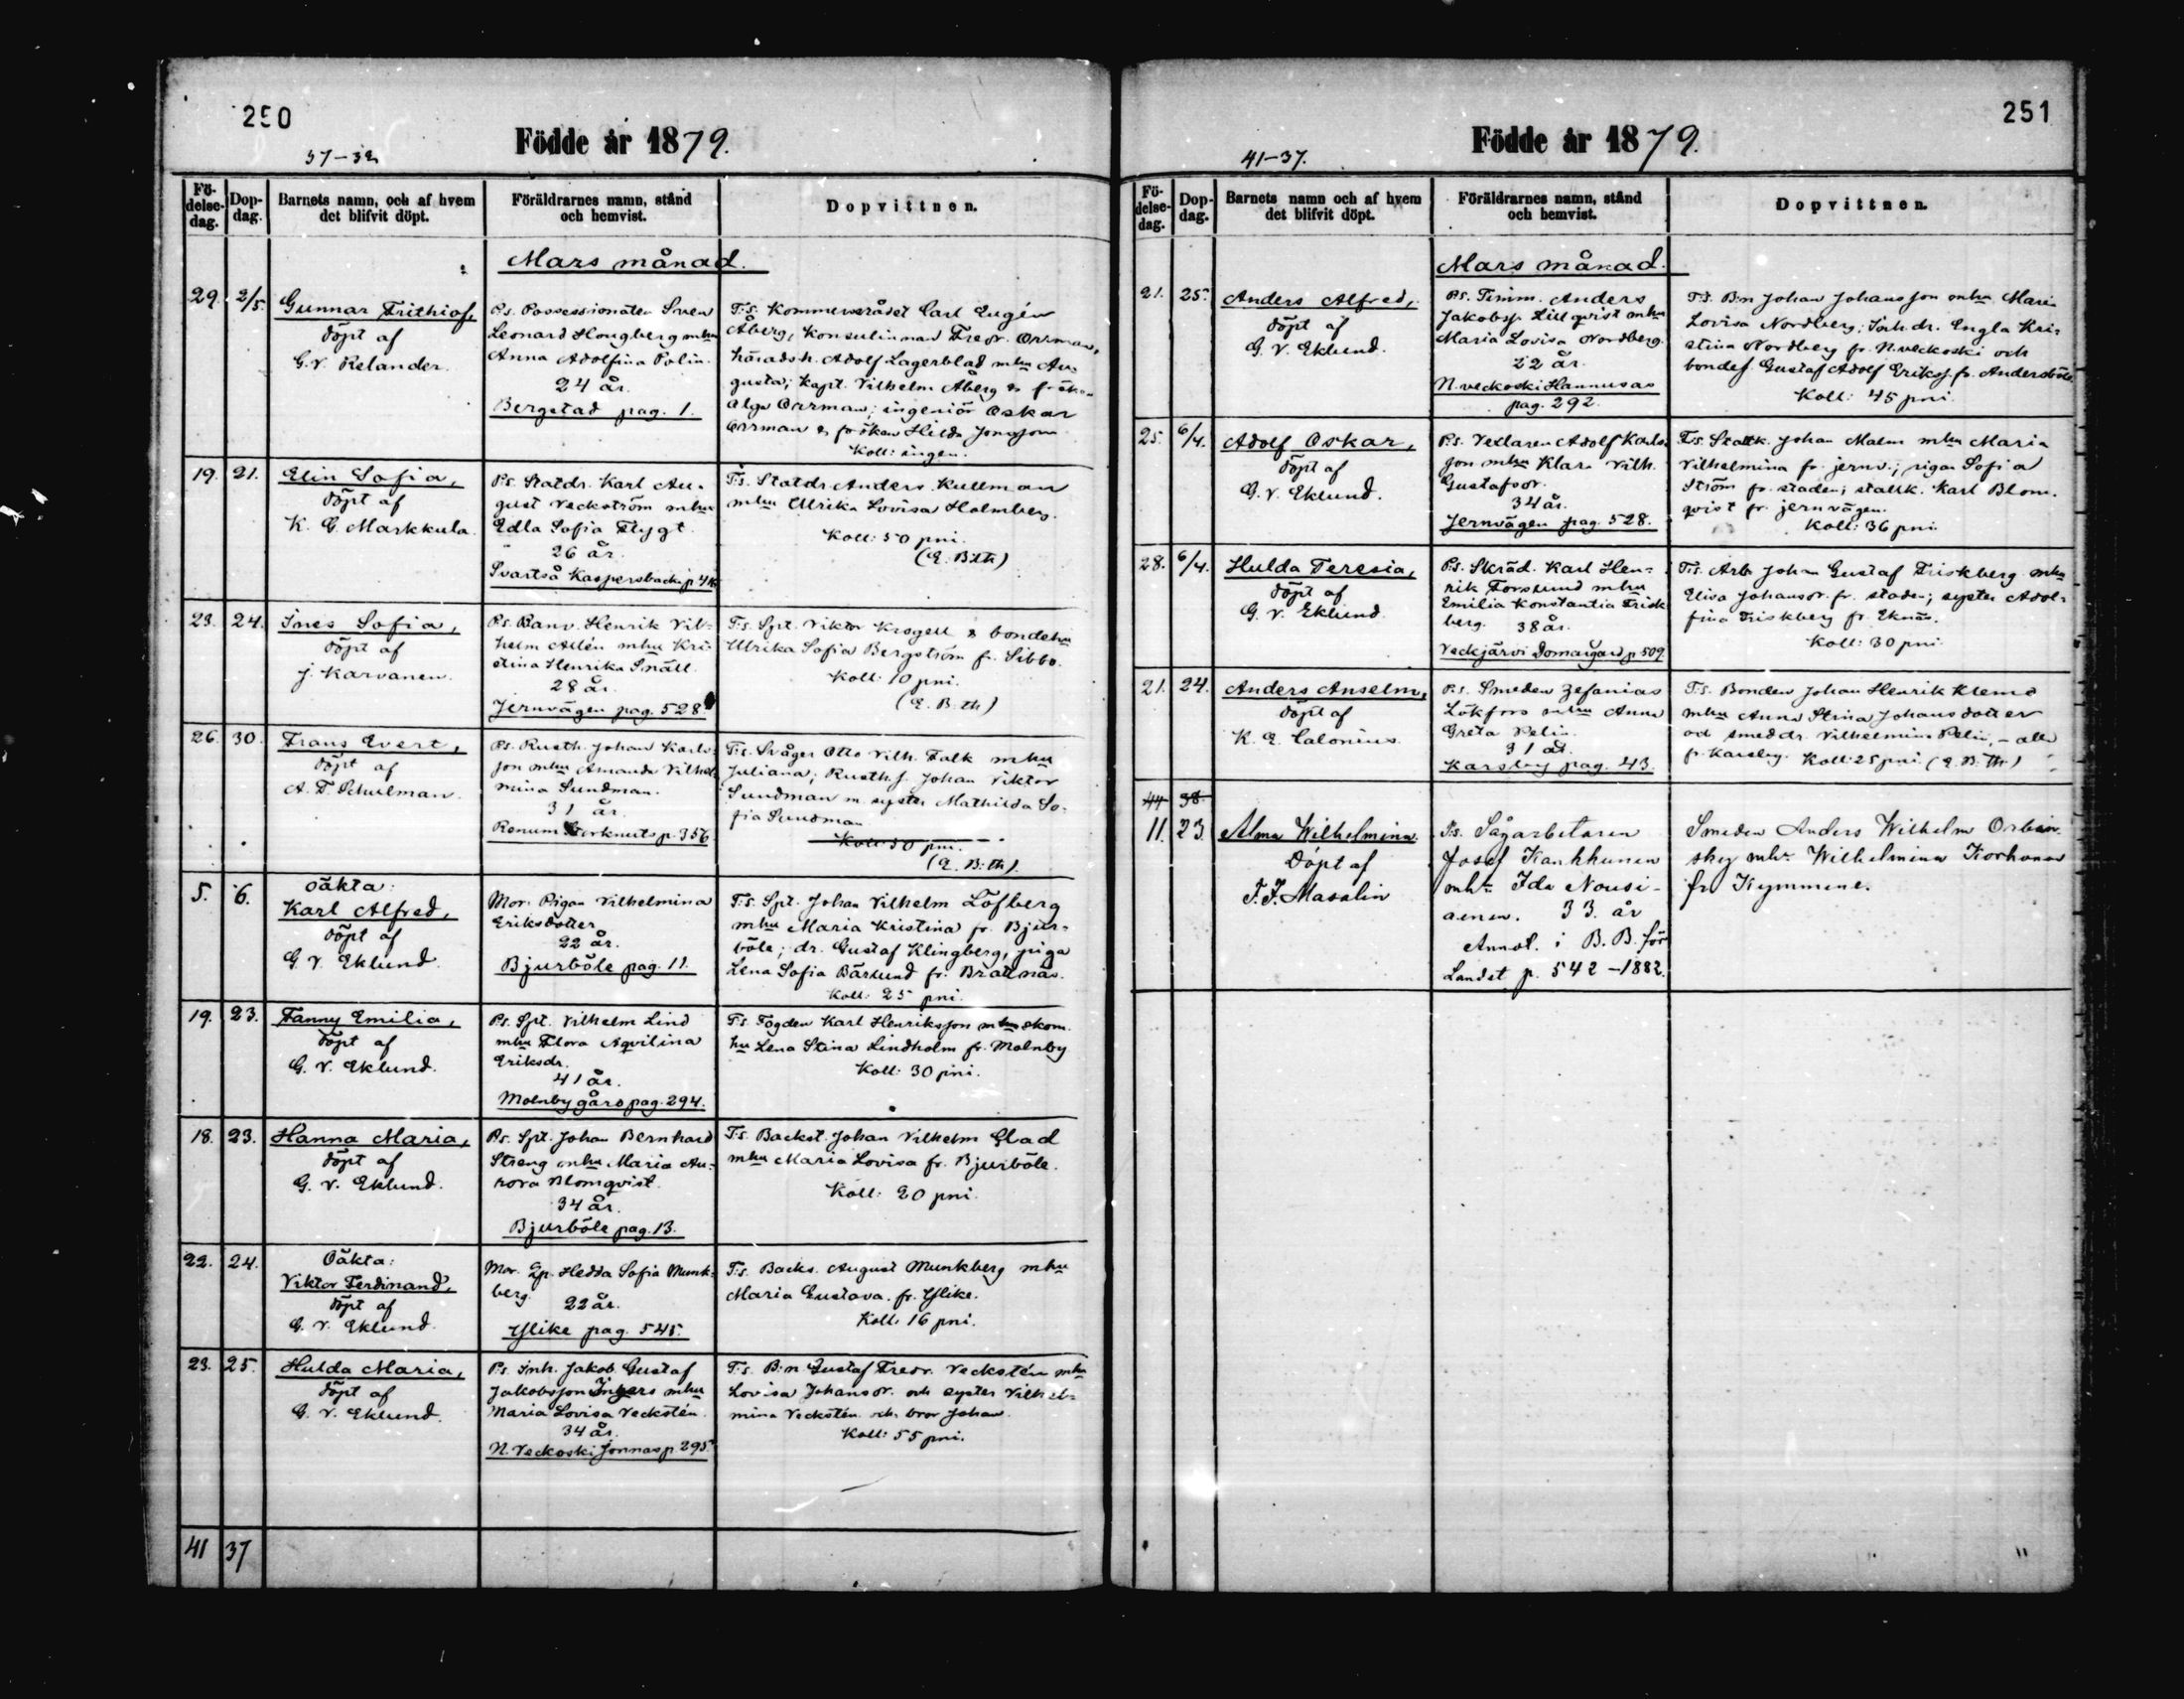 250
Födde år 1879.
37-32
Fö-
delse-
dag.
Dop-
dag.
Barnets namn, och af hvem
det blifvit döpt.
Föräldrarnes namn, stånd
och hemvist.
Dopvittnen.
Mars månad.
29. 2/5.
Gunnar Frithiof,
döpt af
G. V. Relander.
Ps. Possessionaten Sven
Leonard Hougberg mhu
Anna Adolfina Polin.
24 år.
Bergstad pag. 1.
T:s. Kommerserådet Carl Eugén
Åberg, Konsulinnan Fredr. Orrman,
häradsh. Adolf Lagerblad mhu Au-
gusta; Kapt. Vilhelm Åberg &
Olga Orrman; ingeniör Oskar
Orrman & fröken Hilda Jonsson
Koll: ingen.
19. 21.
Elin Sofia,
döpt af
K. G. Markkula.
Ps. Statdr. Karl Au-
gust Veckström mhu
Edla Sofia Flygt.
26 år.
Svartså Kaspersbacka p.
T:s. Statdr. Anders Kullman
mhu Ulrika Lovisa Holmberg.
Koll: 50 pni.
(E. B:th)
23. 24.
Ines Sofia,
döpt af
J. Karvanen.
Ps. Banv. Henrik Vil-
helm Allén mhu Kri-
stina Henrika Snäll.
28 år.
Jernvägen pag. 528.
T:s. Spt. Viktor Krogell & bondehu
Ulrika Sofia Bergström fr. Sibbo.
Koll: 10 pni.
(E. B. th)
26. 30.
Frans Evert,
döpt af
A. F. Schulman.
Ps. Rusth. Johan Karls-
son mhu Amanda Vilhel-
mina Sundman.
31 år.
Renum Storknuts p. 356.
T:s. Svåger Otto Vilh. Falk mhu
Juliana; Rusth.s. Johan Viktor
Sundman m. syster Mathilda So-
fia Sundman
Koll: 50 pni.
(E. B:th).
5. 6.
Oäkta:
Karl Alfred,
döpt af
G. V. Eklund.
Mor: Pigan Vilhelmina
Eriksdotter
22 år.
Bjurböle pag. 11.
T:s. Spt. Johan Vilhelm Löfberg
mhu Maria Kristina fr. Bjur-
böle; dr. Gustaf Klingberg, piga
Lena Sofia Bärlund fr. Bratnäs.
Koll: 25 pni.
19. 23.
Fanny Emilia,
döpt af
G. V. Eklund.
Ps. Spt. Vilhelm Lind
mhu Flora Aqvilina
Eriksdr.
41 år.
Molnby gård pag. 294.
T:s. Fogden Karl Henriksson mhu skom.
hu Lena Stina Lindholm fr. Molnby
Koll: 30 pni.
18. 23.
Hanna Maria,
döpt af
G. V. Eklund.
Ps. Spt. Johan Bernhard
Streng mhu Maria Au-
rora Blomqvist.
34 år.
Bjurböle pag. 13.
T:s. Backst. Johan Vilhelm Glad
mhu Maria Lovisa fr. Bjurböle.
Koll: 20 pni.
22. 24.
Oäkta:
Viktor Ferdinand,
döpt af
G. V. Eklund.
Mor. Qp. Hedda Sofia Munk-
berg.
22 år.
Ylike pag. 545.
T:s. Backs. August Munkberg mhu
Maria Gustava. fr. Ylike.
Koll: 16 pni.
23. 25.
Hulda Maria,
döpt af
G. V. Eklund.
Ps. Inh. Jakob Gustaf
Jakobsson Ingers mhu
Maria Lovisa Veckstén.
34 år.
N. Veckoski Jonnas p. 295
T:s. B:n Gustaf Fredr. Veckstén mhu
Lovisa Johansdr. och syster Vilhel-
mina Veckstén och bror Johan.
Koll: 55 pni.
41 37
251
Födde år 1879.
41-37.
Fö-
delse-
dag.
Dop-
dag.
Barnets namn och af hvem
det blifvit döpt.
Föräldrarnes namn, stånd
och hemvist.
Dopvittnen.
Mars månad.
21. 25.
Anders Alfred,
döpt af
G. V. Eklund.
Ps. Timm. Anders
Jakobss. Lillqvist mhu
Maria Lovisa Nordberg.
22 år.
N. veckoski Hannusas
pag. 292.
T:s. B:n Johan Johansson mhu Maria
Lovisa Nordberg; Inh. dr. Engla Kri-
stina Nordberg fr. N. veckoski och
bondes. Gustaf Adolf Erikss. fr. Andersböle
Koll: 45 pni.
25. 6/4.
Adolf Oskar,
döpt af
G. V. Eklund.
Ps. Vexlaren Adolf Karls-
son mhu Klara Vilh.
Gustafsdr.
34 år.
Jernvägen pag. 528.
T:s. Stallk. Johan Malm mhu Maria
Vilhelmina fr. jernv.; pigan Sofia
Ström fr. staden; stallk. Karl Blom-
qvist fr. jernvägen.
Koll: 36 pni.
28. 6/4.
Hulda Teresia,
döpt af
G. V. Eklund.
Ps. Skräd. Karl Hen-
rik Forslund mhu
Emilia Konstantia Frisk-
berg. 38 år.
Veckjärvi Domargård p. 509
T:s. Arb. Johan Gustaf Friskberg mhu
Elisa Johansdr. fr. staden; syster Adol-
fina Friskberg fr. Eknäs.
Koll: 30 pni.
21. 24.
Anders Anselm,
döpt af
K. E. Calonius.
Ps. Smeden Zefanias
Lökfors mhu Anna
Greta Pelin.
31 år.
Karsby pag. 43.
T:s. Bonden Johan Henrik Klems
mhu Anna Stina Johansdotter
od smeddr. Vilhelmina Pelin, - alla
fr. Karsby. Koll: 25 pni. (E. B. Th)
44 38
11. 23
Alma Wilhelmina.
Döpt af
F. F. Masalin
Ps. Sågarbetaren
Josef Kankkunen
mhu Ida Nousi-
ainen. 33 år
Annot. i B. B. för
Landet p. 542 - 1882.
Smeden Anders Wilhelm Orbin-
sky mhu Wilhelmina Korhonen
fr Kymmene.